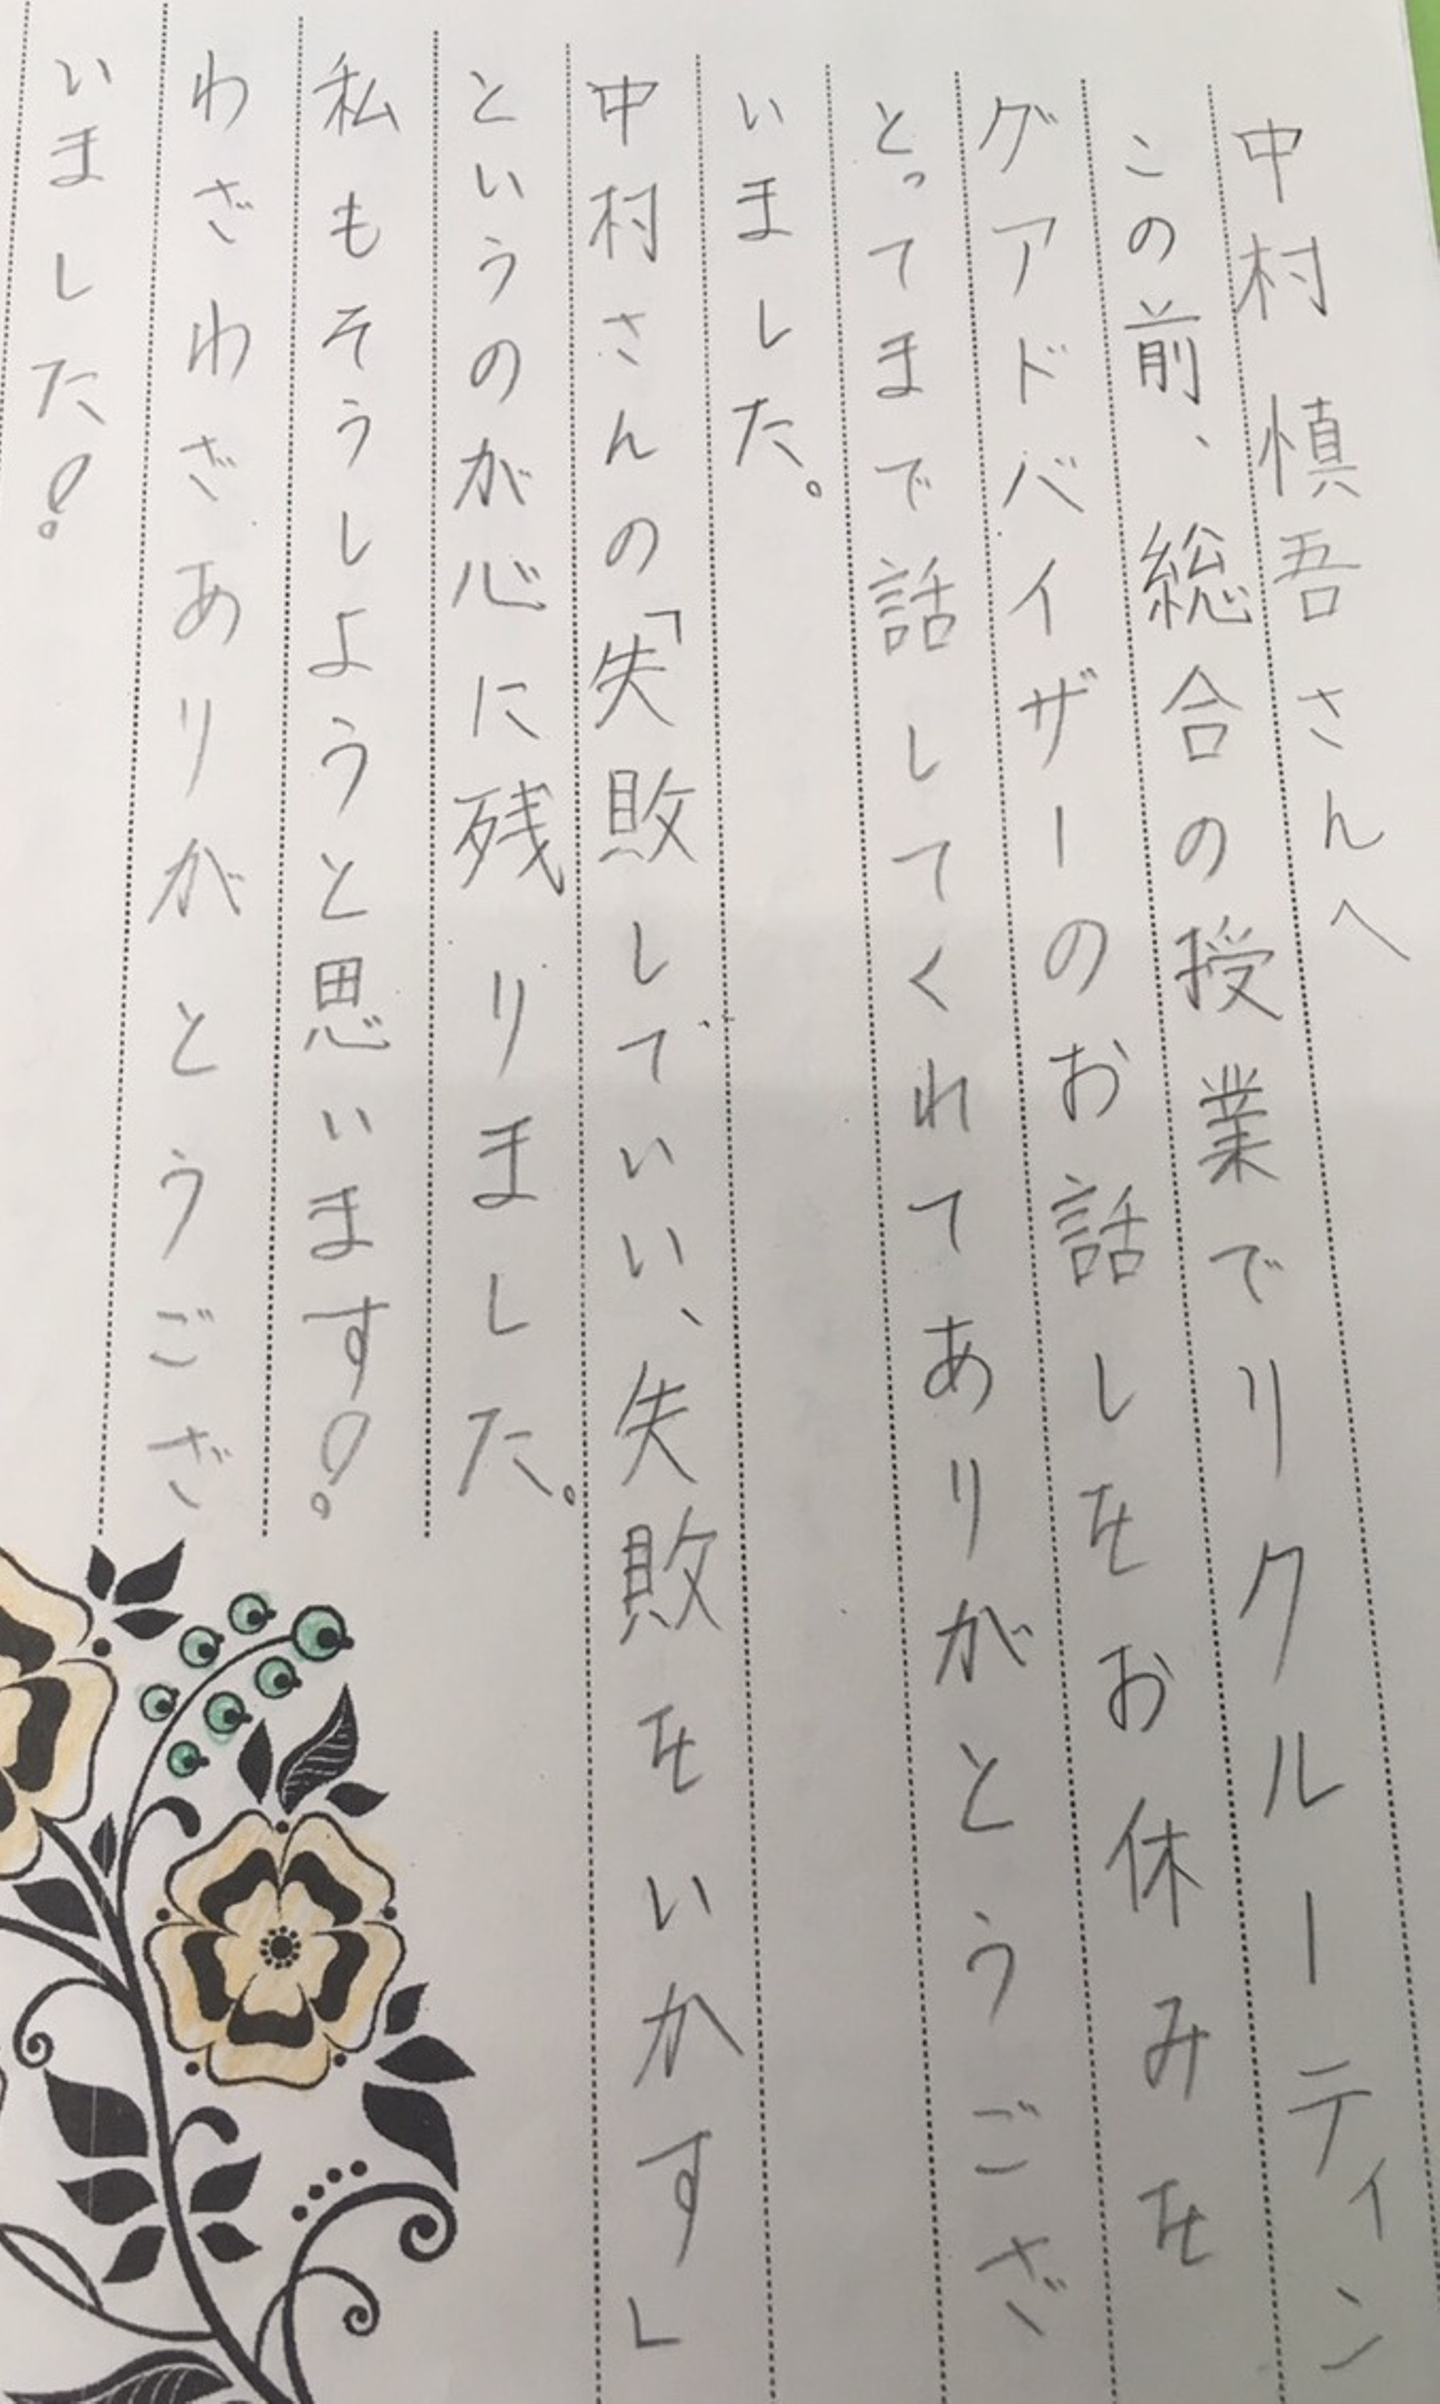 中村 慎吾さんへ
この前、総合の授業でリクルーティン
グアドバイザーのお話しをお休みを
とってまで話してくれてありがとうござ
いました。
中村さんの「失敗していい、失敗をいかす」
というのが心に残りました。
私もそうしようと思います!
わざわざありがとうござ
いました!